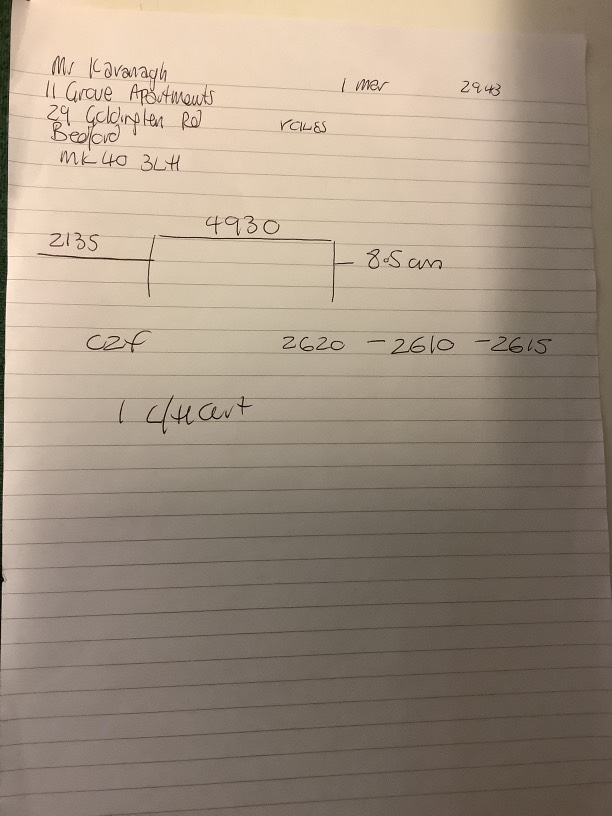 Mr Kavanagh
11 Grove Apartments
29 Goldington Rd
Bedford
MK40 3LH
1 mer 2943
4930
2135
8.5cm
C2f 2620 - 2610 - 2615
1 C/H